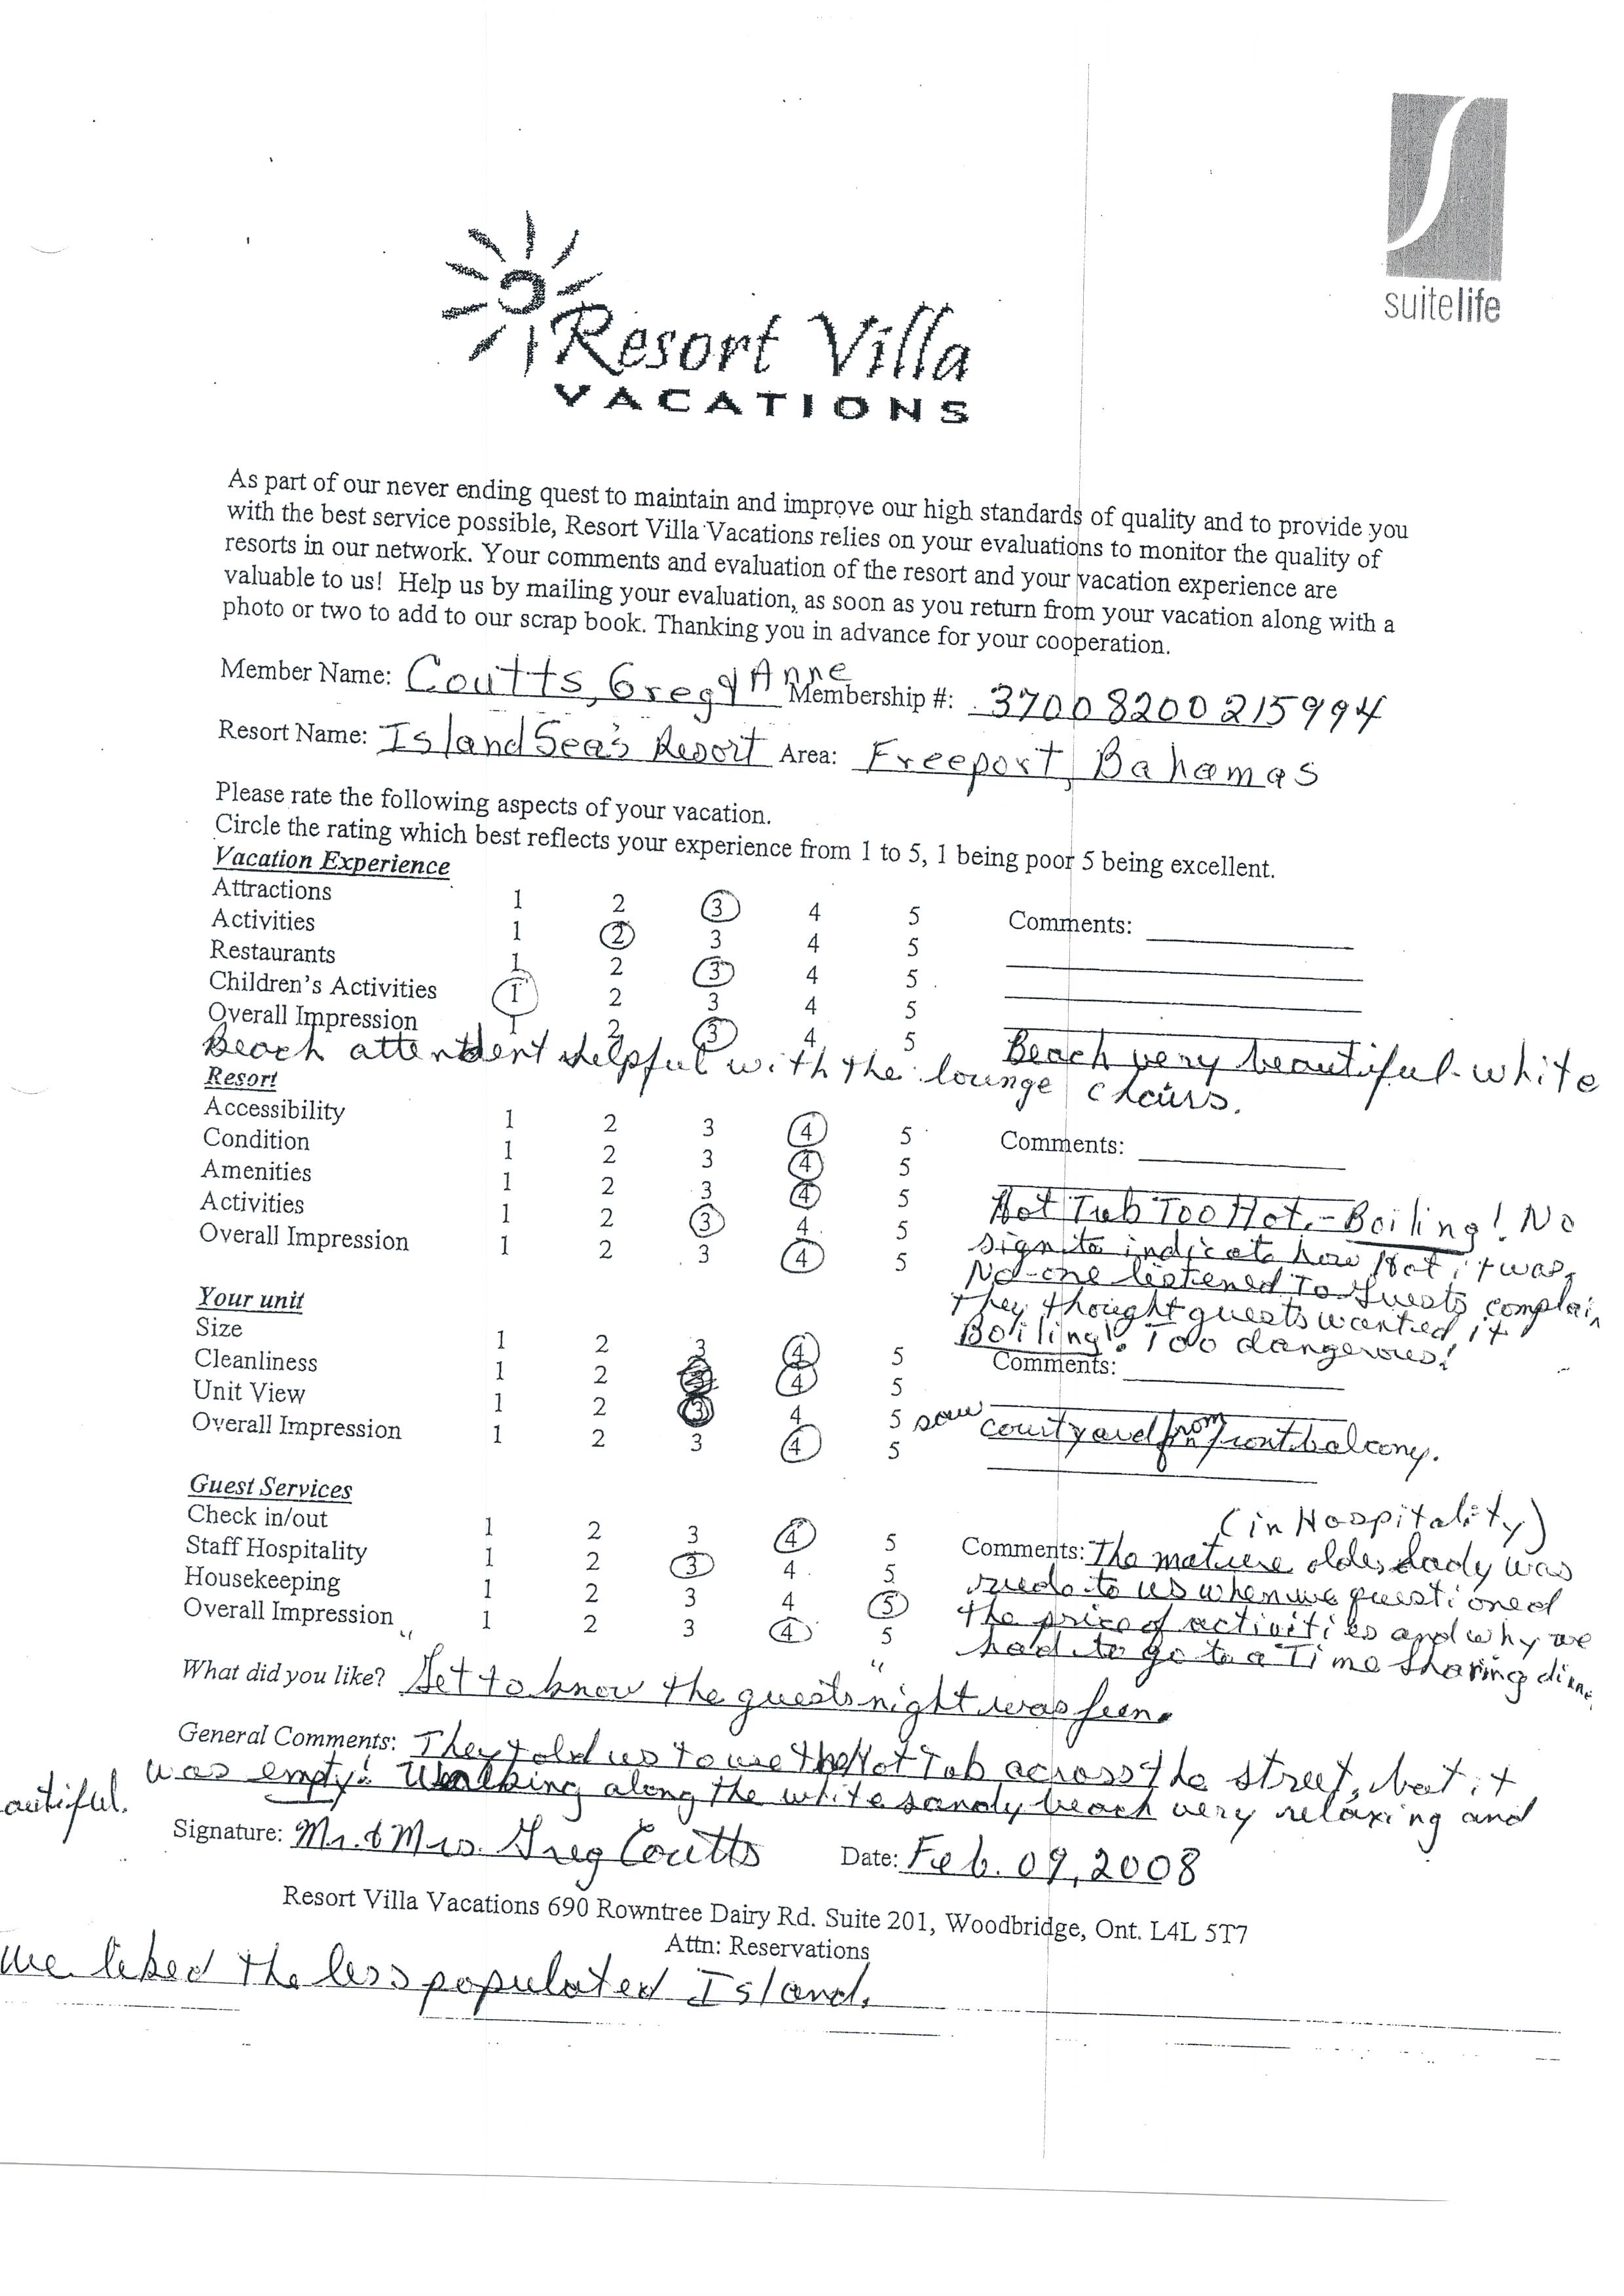 suitelife
Resort Villa
VACATIONS
As part of our never ending quest to maintain and improve our high standards of quality and to provide you
with the best service possible, Resort Villa Vacations relies on your evaluations to monitor the quality of
resorts in our network. Your comments and evaluation of the resort and your vacation experience are
valuable to us! Help us by mailing your evaluation, as soon as you return from your vacation along with a
photo or two to add to our scrap book. Thanking you in advance for your cooperation.
Member Name: Coutts, Greg & Anne Membership #: 37008200215994
Resort Name: Island Sea's Resort Area: Freeport, Bahamas
Please rate the following aspects of your vacation.
Circle the rating which best reflects your experience from 1 to 5, 1 being poor 5 being excellent.
Vacation Experience
Attractions 1 2 3 4 5 Comments:
Activities 1 2 3 4 5
Restaurants 1 2 3 4 5
Children's Activities 1 2 3 4 5
Overall Impression 1 2 3 4 5
Beach very beautiful - white
Beach attendent helpful with the lounge chairs.
Resort
Accessibility 1 2 3 4 5 Comments:
Condition 1 2 3 4 5
Amenities 1 2 3 4 5
Activities 1 2 3 4 5
Overall Impression 1 2 3 4 5
Hot Tub Too Hot. - Boiling! No
sign to indicate how Hot it was.
No-one listened to Guests complain
They thought guests wanted it
Boiling! Too dangerous!
Your unit
Size 1 2 3 4 5 Comments:
Cleanliness 1 2 3 4 5
Unit View 1 2 3 4 5
Overall Impression 1 2 3 4 5
saw courtyard from front balcony.
Guest Services
Check in/out 1 2 3 4 5
Staff Hospitality 1 2 3 4 5
Housekeeping 1 2 3 4 5
Overall Impression 1 2 3 4 5
(in Hospitality)
Comments: The mature older lady was
rude to us when we questioned
the price of activities and why we
had to go to a Time Sharing
What did you like? "Get to know the guests night" was fun.
General Comments: They told us to use the Hot Tub across the street, but it
was empty! Walking along the white sandy beach very relaxing and
autiful.
Signature: Mr. & Mrs. Greg Coutts Date: Feb. 09, 2008
Resort Villa Vacations 690 Rowntree Dairy Rd. Suite 201, Woodbridge, Ont. L4L 5T7
Attn: Reservations
We liked the less populated Island.